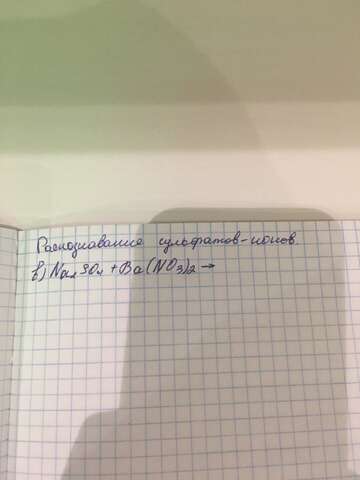 Распознавание сульфатов-ионов.
в) Na₂SO₄ + Ba(NO₃)₂ →